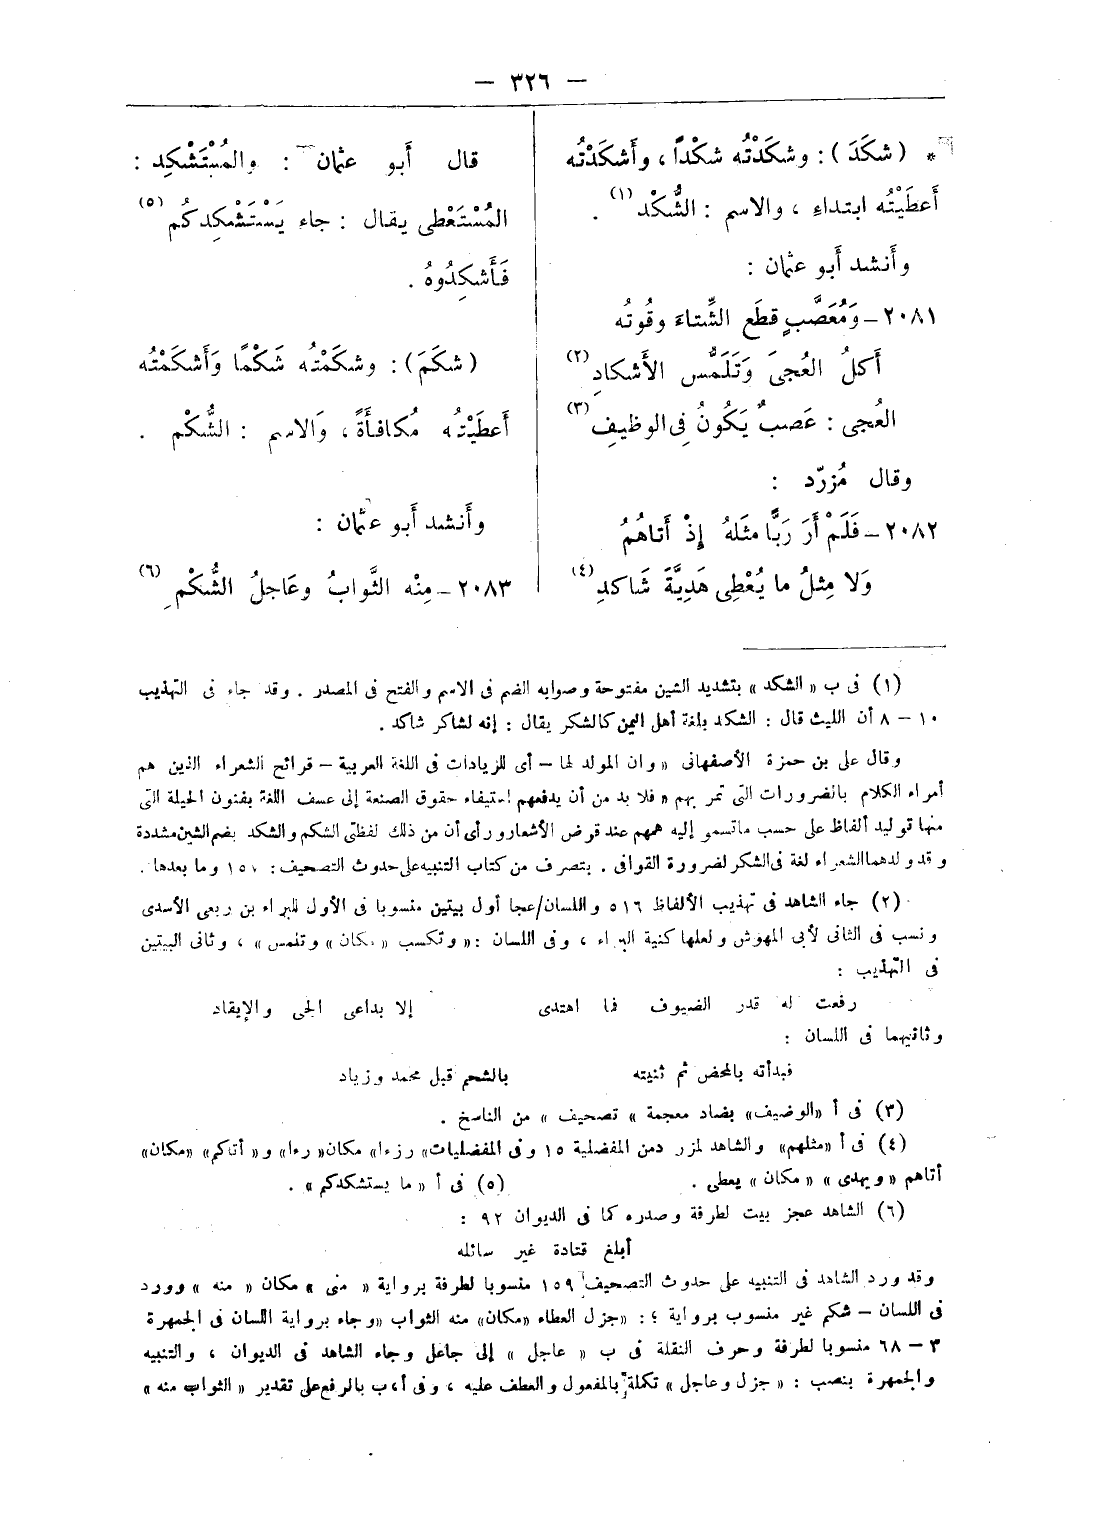 — ٣٢٦ —
* ( شكَدَ ) : وشكَدْتُه شكْداً ، وأَشكَدْتُه
أَعطَيْتُه ابتداءِ ، والاسم : الشُّكْد (١) .
وأَنشد أَبو عثمان :
٢٠٨١ – وَمُعَصَّبٍ قطَع الشِّتاءَ وقُوتُه
أَكلُ العُجىَ وَتَلَمُّس الأَشكادِ (٢)
العُجى : عَصبٌ يَكُونُ فى الوظيفِ (٣)
وقال مُزرّد :
٢٠٨٢ – فَلَمْ أَرَ رَبًّا مثلَهُ إِذْ أَتاهُمُ
وَلا مِثلُ ما يُعْطِى هَدِيَّةَ شَاكدِ (٤)
قال أَبو عثمان : والمُسْتَشْكِد :
المُسْتَعْطى يقال : جاء يَسْتَشْكِدكُم (٥)
فَأَشكِدُوهُ .
( شكَمَ ) : وشكَمْتُه شَكْمًا وَأَشكَمْتُه
أَعطَيْتُه مُكافأَةً ، وَالاسم : الشُّكْم .
وأَنشد أَبو عثمان :
٢٠٨٣ – مِنْه الثَّوابُ وعَاجلُ الشُّكْمِ (٦)
(١) فى ب « الشكد » بتشديد الشين مفتوحة وصوابه الضم فى الاسم والفتح فى المصدر . وقد جاء فى التهذيب
١٠ – ٨ أن الليث قال : الشكد بلغة أهل اليمن كالشكر يقال : إنه لشاكر شاكد .
وقال على بن حمزة الأصفهانى « وان المولد لما – أى للزيادات فى اللغة العربية – قرائح الشعراء الذين هم
أمراء الكلام بالضرورات التى تمر بهم « فلا بد من أن يدفعهم استيفاء حقوق الصنعة إلى عسف اللغة بفنون الحيلة التى
منها توليد ألفاظ على حسب ماتسمو إليه هممهم عند قرض الأشعار ورأى أن من ذلك لفظتى الشكم والشكد بضم الشين مشددة
وقد ولدهما الشعراء لغة فى الشكر لضرورة القوافى . بتصرف من كتاب التنبيه على حدوث التصحيف : ١٥٠ وما بعدها .
(٢) جاء الشاهد فى تهذيب الألفاظ ٥١٦ واللسان/عجا أول بيتين منسوبا فى الأول للبراء بن ربعى الأسدى
ونسب فى الثانى لأبى المهوش ولعلها كنية البراء ، وفى اللسان : « وتكسب « مكان » وتلمس » ، وثانى البيتين
فى التهذيب :
رفعت له قدر الضيوف فما اهتدى إلا بداعى الحى والإيقاد
وثانيهما فى اللسان :
فبدأته بالمحض ثم ثنيته بالشحم قبل محمد وزياد
(٣) فى أ «الوضيف» بضاد معجمة » تصحيف » من الناسخ .
(٤) فى أ «مثلهم» والشاهد لمزرد من المفضلية ١٥ وفى المفضليات» رزءا» مكان» ردءا» و« أتاكم» «مكان»
أتاهم «ويهدى » «مكان » يعطى .
(٥) فى أ « ما يستشكدكم » .
(٦) الشاهد عجز بيت لطرفة وصدره كما فى الديوان ٩٢ :
أبلغ قتادة غير سائله
وقد ورد الشاهد فى التنبيه على حدوث التصحيف ١٥٩ منسوبا لطرفة برواية « منى » مكان « منه » وورد
فى اللسان – شكم غير منسوب برواية : «جزل العطاء «مكان» منه الثواب «وجاء برواية اللسان فى الجمهرة
٣ – ٦٨ منسوبا لطرفة وحرف النقلة فى ب « عاجل » إلى جاعل وجاء الشاهد فى الديوان ، والتنبيه
والجمهرة بنصب : « جزل وعاجل » تكملة بالمفعول والعطف عليه ، وفى أ،ب بالرفع على تقدير « الثواب منه »